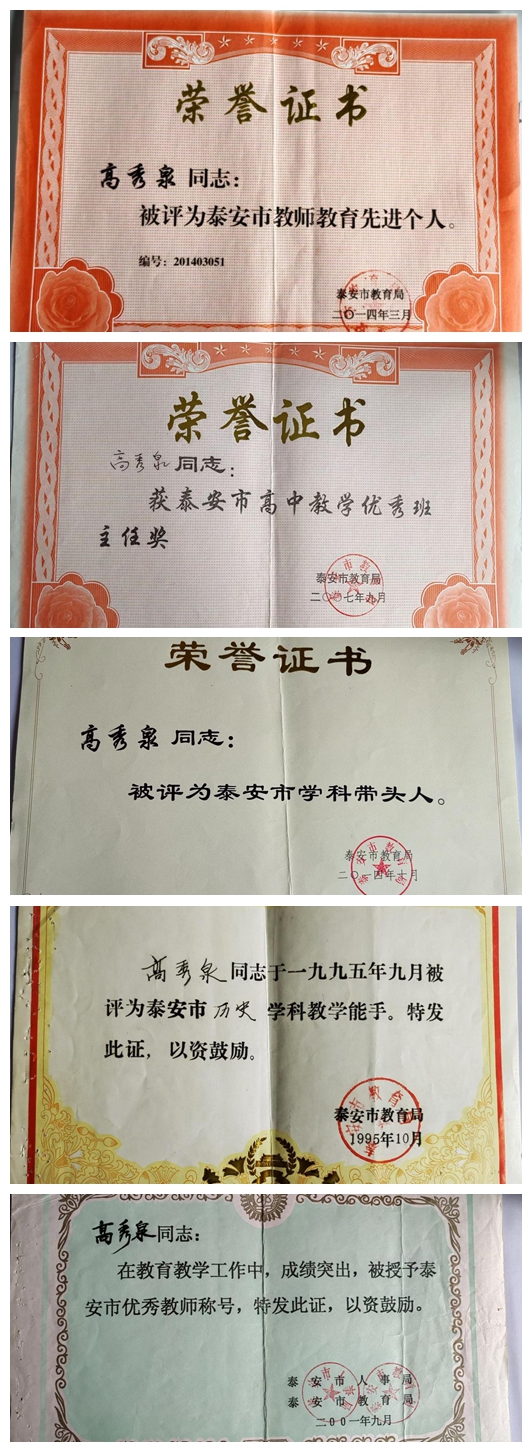 荣誉证书
高秀泉 同志：
被评为泰安市教师教育先进个人。
编号：201403051
泰安市教育局
二〇一四年三月
荣誉证书
高秀泉 同志：
获泰安市高中教学优秀班
主任奖
泰安市教育局
二〇〇七年九月
荣誉证书
高秀泉 同志：
被评为泰安市学科带头人。
泰安市教育局
二〇一四年十月
高秀泉同志于一九九五年九月被
评为泰安市 历史 学科教学能手。特发
此证，以资鼓励。
泰安市教育局
1995年10月
高秀泉同志：
在教育教学工作中，成绩突出，被授予泰
安市优秀教师称号，特发此证，以资鼓励。
泰安市人事局
泰安市教育局
二00一年九月